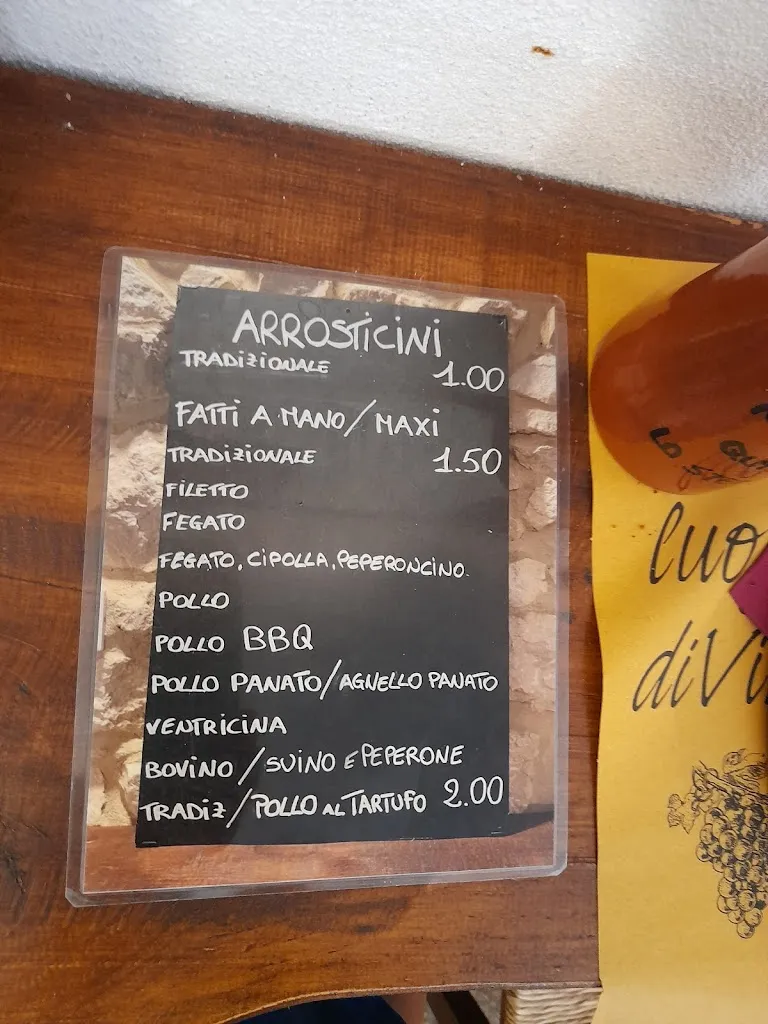 ARROSTICINI
TRADIZIONALE 1.00
FATTI A MANO/MAXI
TRADIZIONALE 1.50
FILETTO
FEGATO
FEGATO, CIPOLLA, PEPERONCINO.
POLLO
POLLO BBQ
POLLO PANATO/AGNELLO PANATO
VENTRICINA
BOVINO/SUINO E PEPERONE
TRADIZ/POLLO AL TARTUFO 2.00